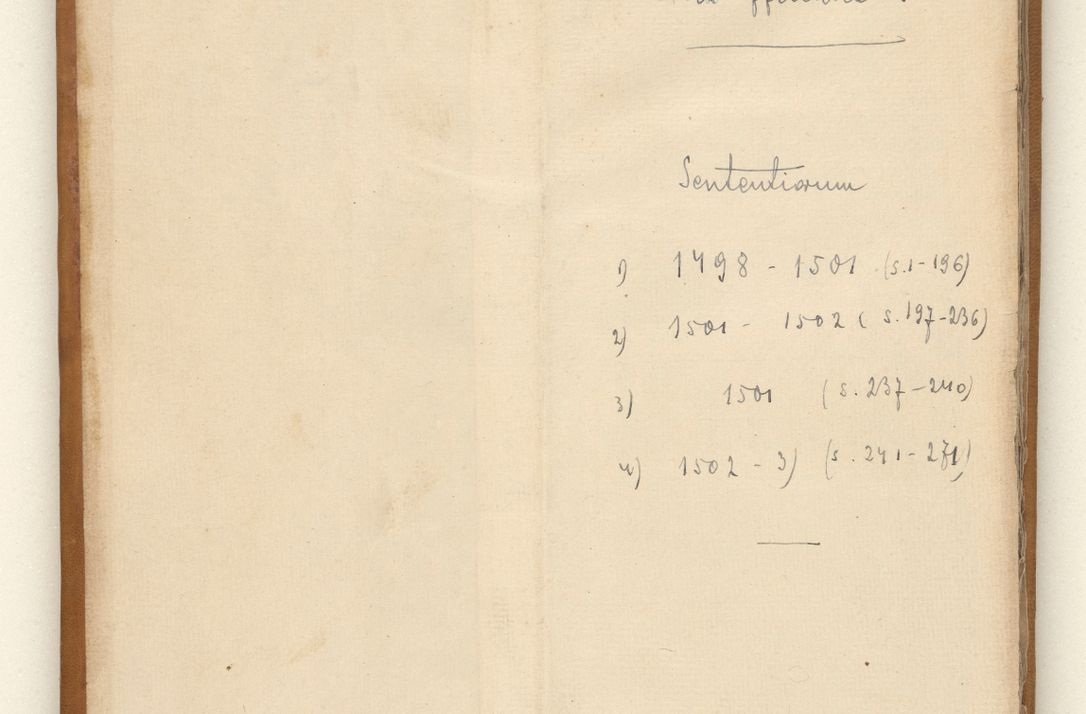 Sententiarum
1) 1498 - 1501 (s.1-196)
2) 1501 - 1502 ( s. 197-236)
3) 1501 ( s. 237-240)
4) 1502 - 3) (s. 241-271)